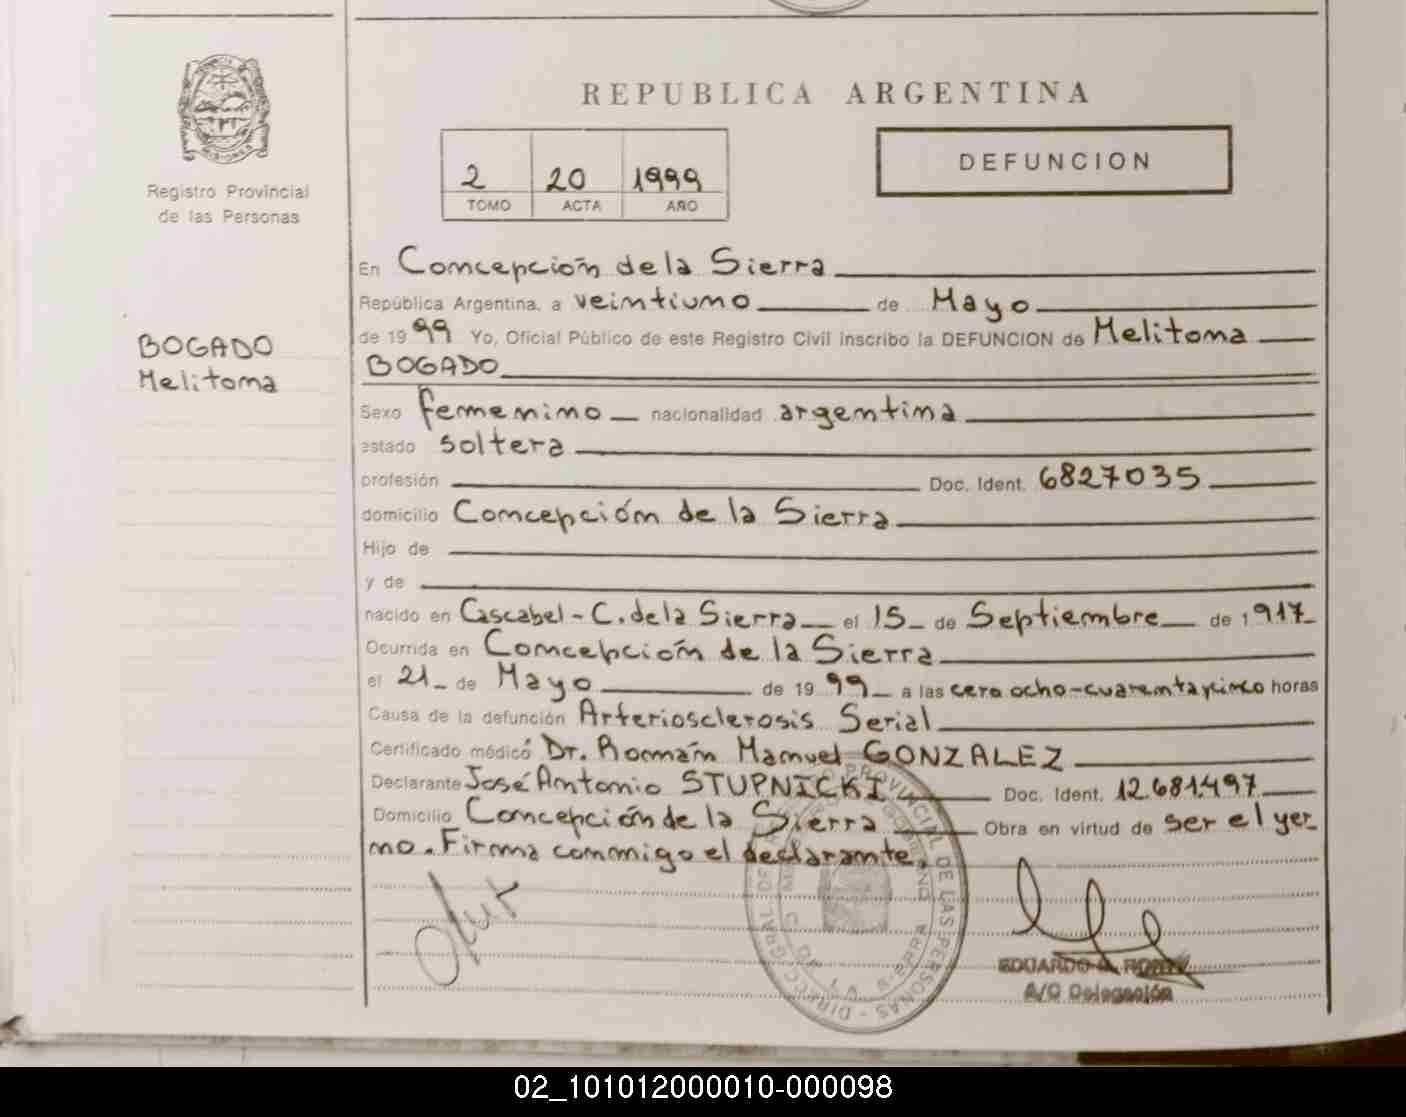 REPUBLICA ARGENTINA
DEFUNCION
2 20 1999
TOMO ACTA AÑO
Registro Provincial
de las Personas
BOGADO
Melitona
En Concepción de la Sierra
República Argentina, a veintiuno de Mayo
de 1999 Yo, Oficial Público de este Registro Civil inscribo la DEFUNCION de Melitona
BOGADO
Sexo femenino nacionalidad argentina
estado soltera
profesión Doc. Ident. 6827035
domicilio Concepción de la Sierra
Hijo de
y de
nacido en Cascabel - C. de la Sierra el 15 de Septiembre de 1917
Ocurrida en Concepción de la Sierra
el 21 de Mayo de 1999 a las cero ocho-cuarenta y cinco horas
Causa de la defunción Arteriosclerosis Serial
Certificado médico Dr. Román Manuel GONZALEZ
Declarante José Antonio STUPNICKI Doc. Ident. 12.681.497
Domicilio Concepción de la Sierra Obra en virtud de ser el yer
no. Firma conmigo el declarante.
PROVINCIAL DE LAS PERSONAS - DIREC. GRAL. DEL
EDUARDO
A/C Delegación
02_101012000010-000098